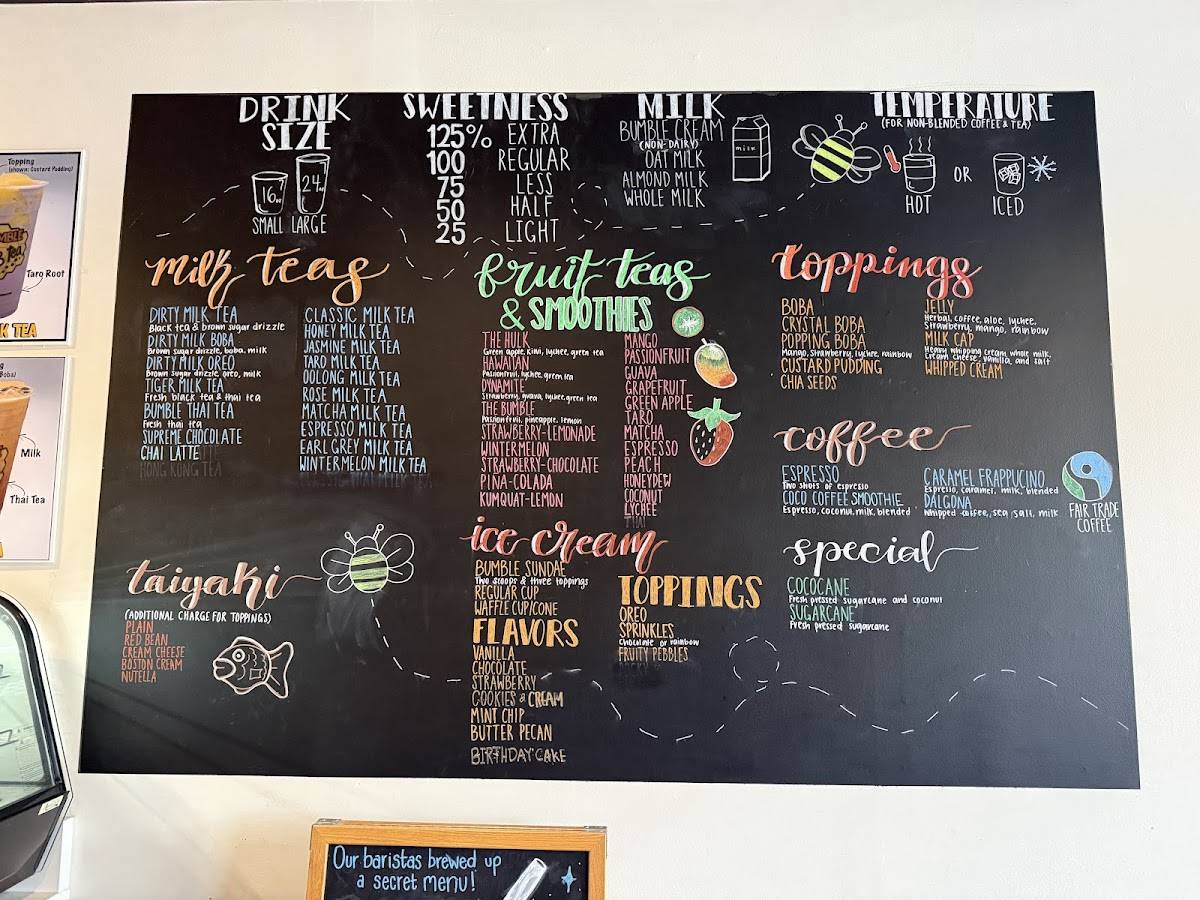 Topping
(shown: Custard Pudding)
Taro Root
K TEA
Milk
Thai Tea
DRINK
SIZE
16oz
24oz
SMALL LARGE
SWEETNESS
125% EXTRA
100 REGULAR
75 LESS
50 HALF
25 LIGHT
MILK
BUMBLE CREAM
(NON-DAIRY)
OAT MILK
ALMOND MILK
WHOLE MILK
milk
TEMPERATURE
(FOR NON-BLENDED COFFEE & TEA)
HOT
OR
ICED
milk teas
DIRTY MILK TEA
Black tea & brown sugar drizzle
DIRTY MILK BOBA
Brown sugar drizzle, boba, milk
DIRTY MILK OREO
Brown sugar drizzle, oreo, milk
TIGER MILK TEA
Fresh black tea & thai tea
BUMBLE THAI TEA
Fresh thai tea
SUPREME CHOCOLATE
CHAI LATTE
HONG KONG TEA
CLASSIC MILK TEA
HONEY MILK TEA
JASMINE MILK TEA
TARO MILK TEA
OOLONG MILK TEA
ROSE MILK TEA
MATCHA MILK TEA
ESPRESSO MILK TEA
EARL GREY MILK TEA
WINTERMELON MILK TEA
fruit teas
& SMOOTHIES
THE HULK
Green apple, kiwi, lychee, green tea
HAWAIIAN
Passionfruit, lychee, green tea
DYNAMITE
Strawberry, guava, lychee, green tea
THE BUMBLE
Passionfruit, pineapple, lemon
STRAWBERRY-LEMONADE
WINTERMELON
STRAWBERRY-CHOCOLATE
PIÑA-COLADA
KUMQUAT-LEMON
MANGO
PASSIONFRUIT
GUAVA
GRAPEFRUIT
GREEN APPLE
TARO
MATCHA
ESPRESSO
PEACH
HONEYDEW
COCONUT
LYCHEE
THAI
toppings
BOBA
CRYSTAL BOBA
POPPING BOBA
Mango, strawberry, lychee, rainbow
CUSTARD PUDDING
CHIA SEEDS
JELLY
Herbal, coffee, aloe, lychee,
Strawberry, mango, rainbow
MILK CAP
Heavy whipping cream, whole milk,
Cream cheese, vanilla, and salt
WHIPPED CREAM
coffee
ESPRESSO
Two shots of espresso
COCO COFFEE SMOOTHIE
Espresso, coconut, milk, blended
CARAMEL FRAPPUCINO
Espresso, caramel, milk, blended
DALGONA
Whipped coffee, sea salt, milk
FAIR TRADE
COFFEE
special
COCOCANE
Fresh pressed sugarcane and coconut
SUGARCANE
Fresh pressed sugarcane
taiyaki
(ADDITIONAL CHARGE FOR TOPPINGS)
PLAIN
RED BEAN
CREAM CHEESE
BOSTON CREAM
NUTELLA
ice cream
BUMBLE SUNDAE
Two scoops & three toppings
REGULAR CUP
WAFFLE CUP/CONE
FLAVORS
VANILLA
CHOCOLATE
STRAWBERRY
COOKIES & CREAM
MINT CHIP
BUTTER PECAN
BIRTHDAY CAKE
TOPPINGS
OREO
SPRINKLES
Chocolate or rainbow
FRUITY PEBBLES
Our baristas brewed up
a secret menu!